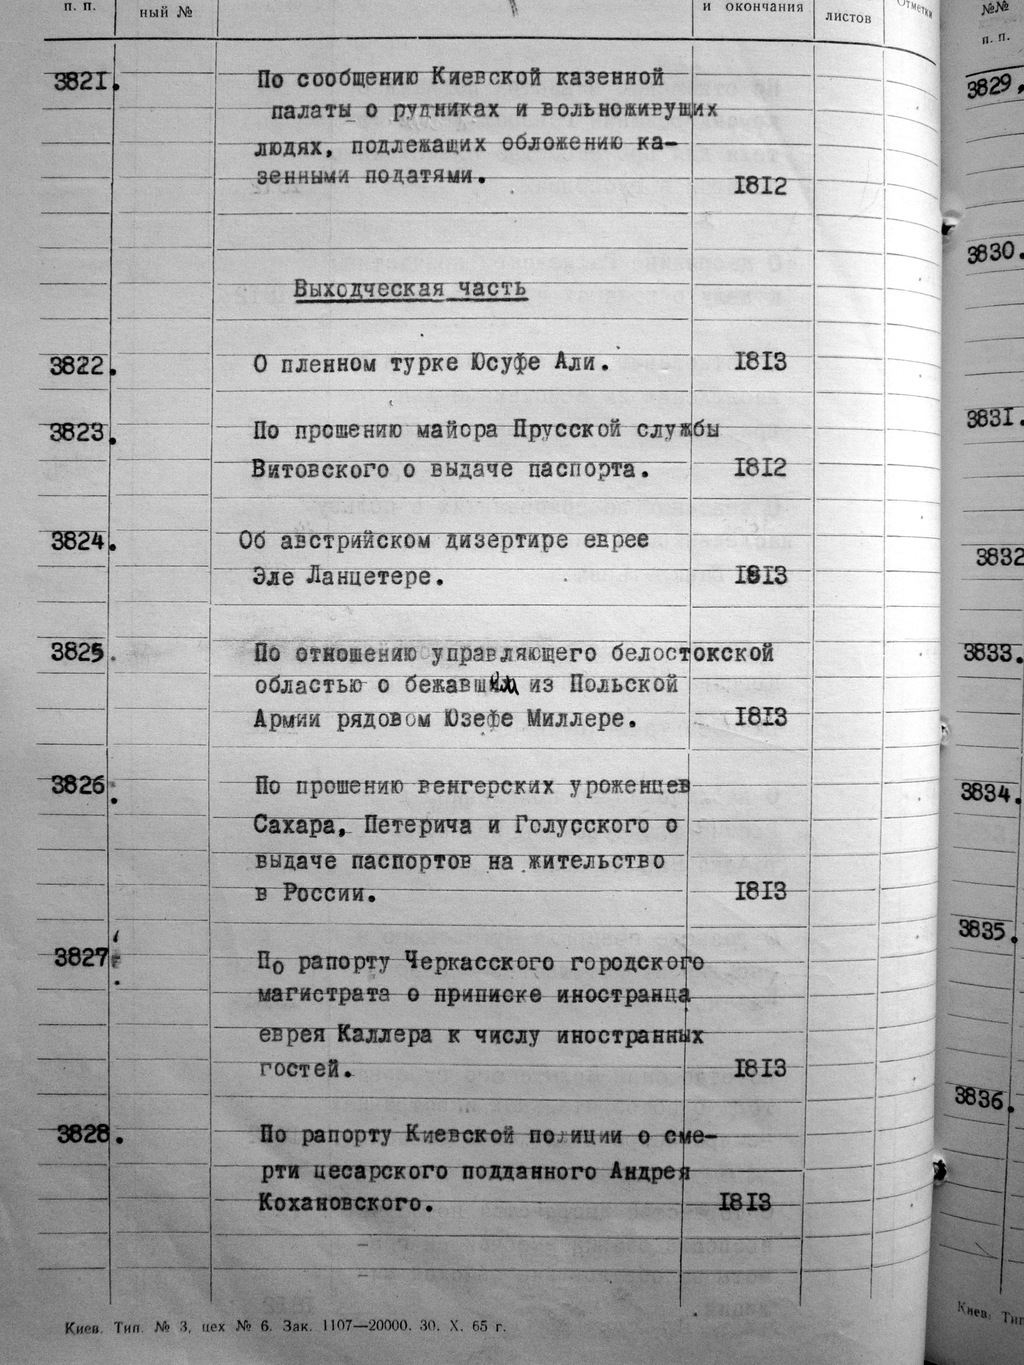 п. п.
ный №
и окончания
листов
Отметки
3821.
По сообщению Киевской казенной
палаты о рудниках и вольноживущих
людях, подлежащих обложению ка-
зенными податями.
1812
Выходческая часть
3822.
О пленном турке Юсуфе Али.
1813
3823.
По прошению майора Прусской службы
Витовского о выдаче паспорта.
1812
3824.
Об австрийском дизертире еврее
Эле Ланцетере.
1813
3825.
По отношению управляющего белостокской
областью о бежавшем из Польской
Армии рядовом Юзефе Миллере.
1813
3826.
По прошению венгерских уроженцев
Сахара, Петерича и Голусского о
выдаче паспортов на жительство
в России.
1813
3827.
По рапорту Черкасского городского
магистрата о приписке иностранца
еврея Каллера к числу иностранных
гостей.
1813
3828.
По рапорту Киевской полиции о сме-
рти цесарского подданного Андрея
Кохановского.
1813
Киев. Тип. № 3, цех № 6. Зак. 1107—20000. 30. X. 65 г.
№№
п. п.
3829.
3830.
3831.
3832
3833.
3834.
3835.
3836.
Киев. Тип